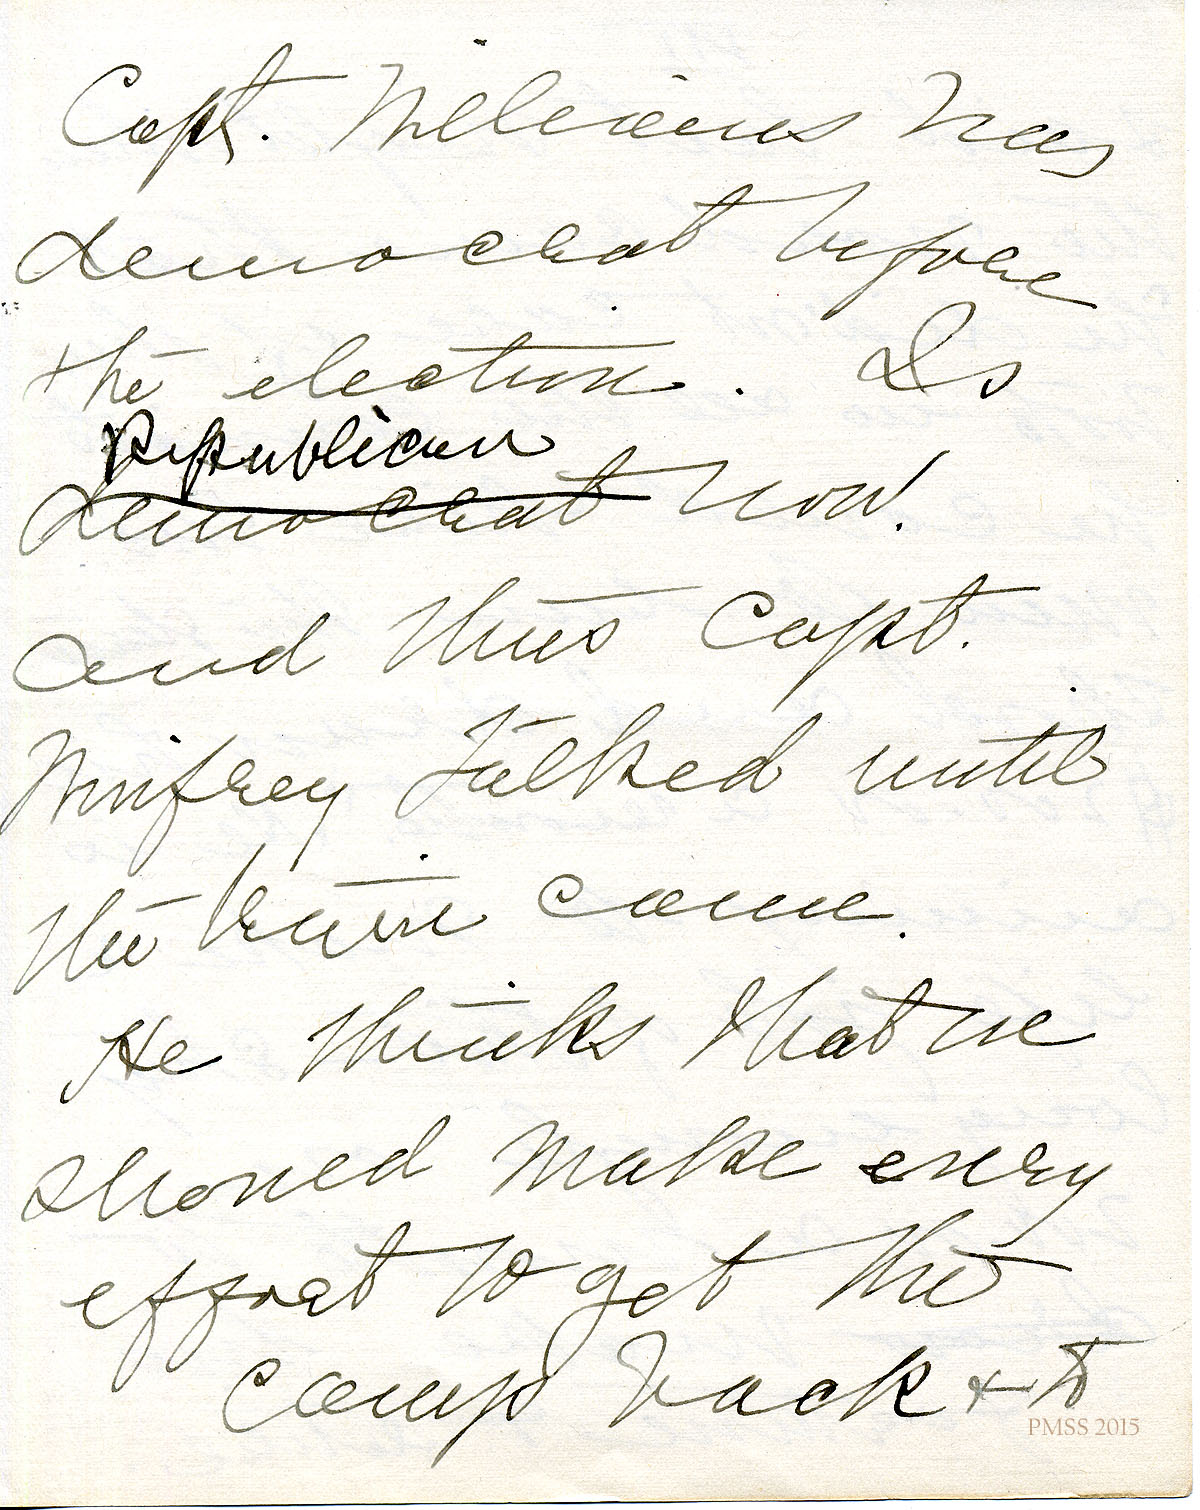 Capt. Williams was
democrat before
the election. Is
Republican
democrat now.
and this Capt.
Winfrey talked until
the train came.
He thinks that we
should make every
effort to get the
camp back + to
PMSS 2015